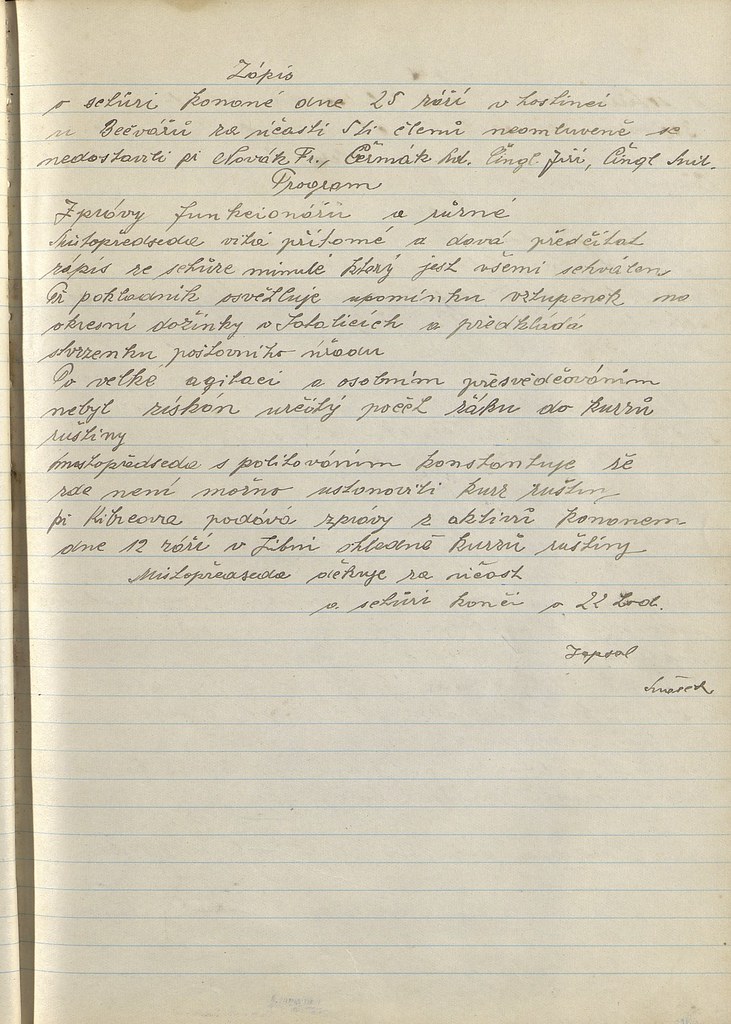 Zápis
o schůzi konané dne 25 září v hostinci
u Bečvářů za účasti 5ti členů neomluveně se
nedostavili pi Novák Fr., Čermák Ant. Čingl Jiří, Čingl Mil.
Program
Zprávy funkcionářů a různé
Místopředseda vítá přítomé a dává předčítat
zápis ze schůze minulé který jest všemi schválen
Př pokladník osvětluje upomínku vztupenek na
okresní dožínky v Satalicích a předkládá
stvrzenku poštovního úřadu
Po velké agitaci a osobním přesvědčováním
nebyl získán určitý počet žáku do kurzů
ruštiny
místopředseda s politováním konstantuje že
zde není možno ustanoviti kurz ruštiny
pi podává zprávy z aktivů konanem
dne 12 září v Libni ohledně kurzů ruštiny
Místopředseda děkuje za účast
a schůzi končí o 22 hod.
Zapsal